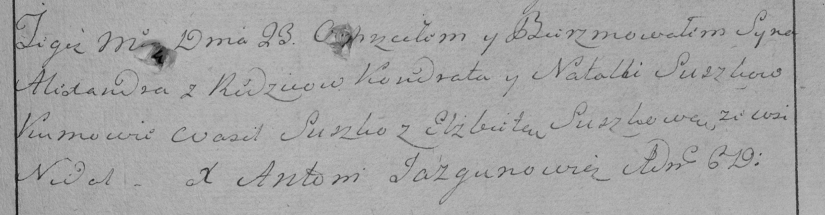 Tegiż Mca Dnia 23. Ochrzciłem y Bierzmowałem Syna
Alexandra z Rodzicow Kondrata y Natalki Suszkow
Kumowie Wasil Suszko z Elżbietą Suszkową, ze wsi
Nidal - X Antoni Jazgunowicz Adm